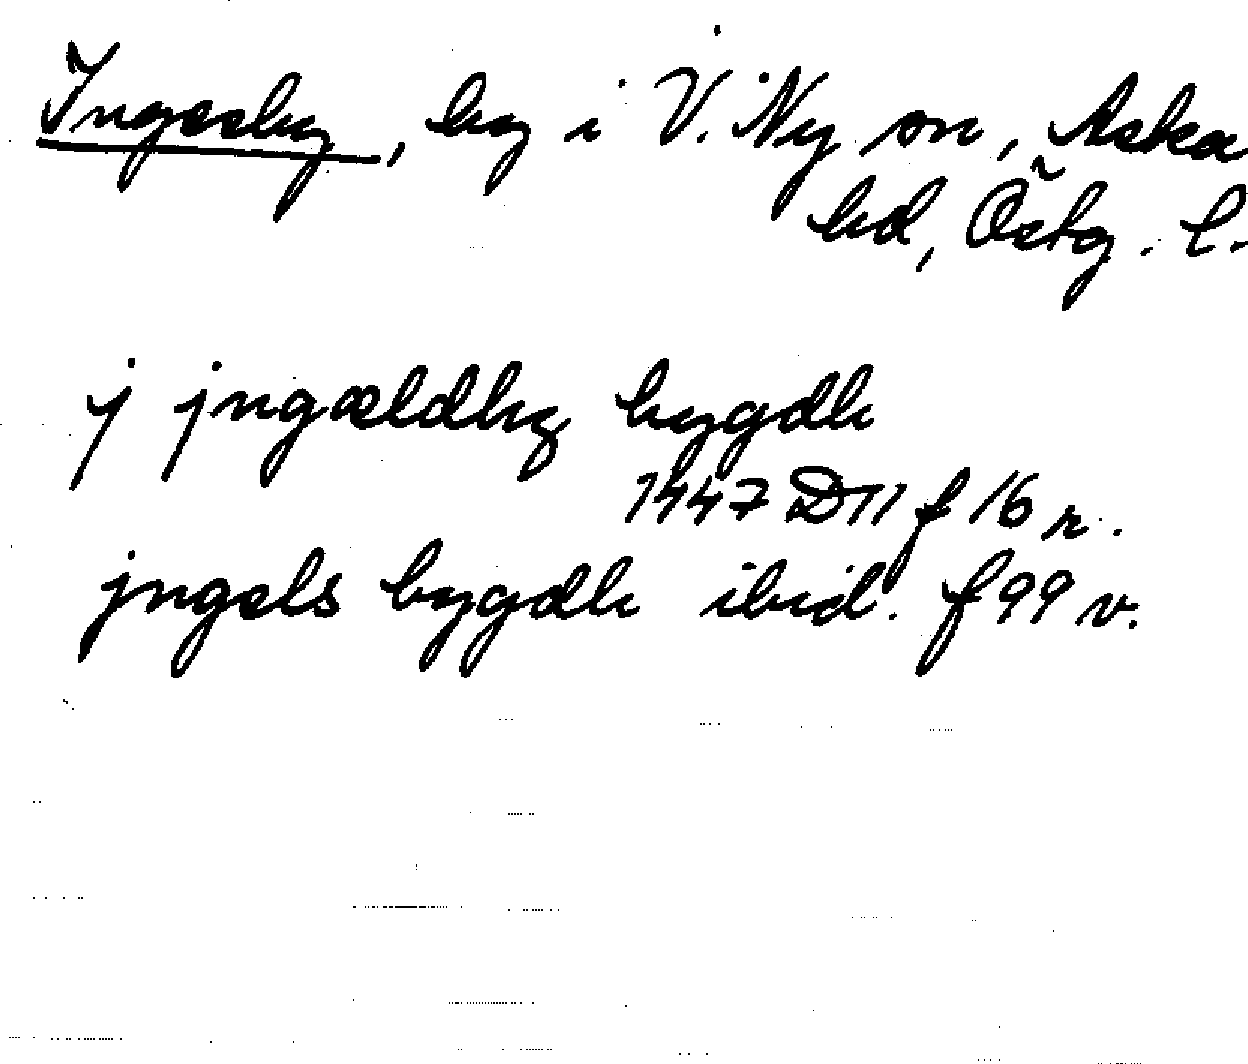 Ingesby, by i V. Ny sn, Aska
hd, Östg. l.
j jngældby bygdh
1447 D11 f 16 r.
jngels bygdh ibid. f 99 v.